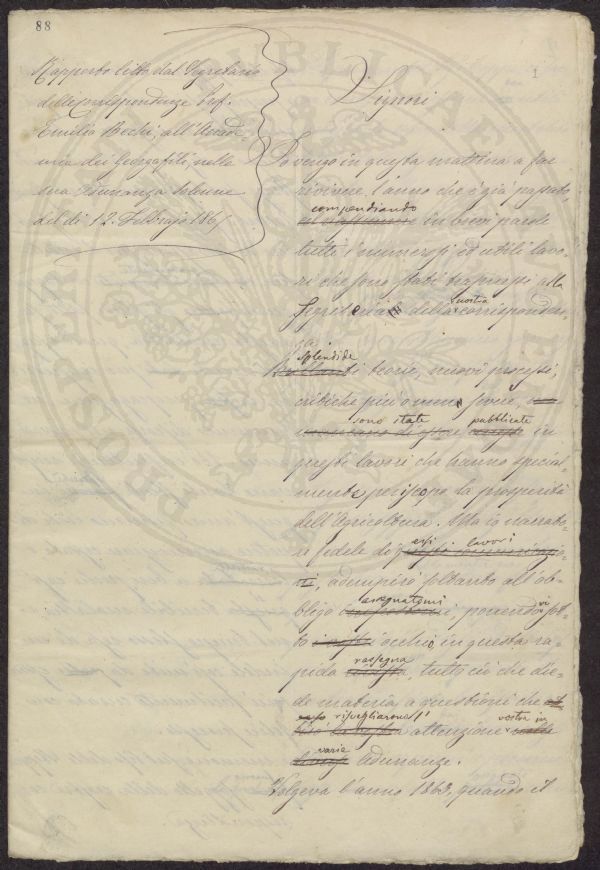 88
1
Rapporto letto dal Segretario
delle corrispondenze Prof.
Emilio Bechi, all'Accade-
mia dei Georgofili, nella
sua Adunanza solenne
del di 12. Febbrajo 186
Signori
Io vengo in questa mattina a far
rivivere l'anno che è già passato
compendiando
in brevi parole
tutti i numerosi ed utili lavo-
ri che sono stati trasmessi alla
Segreteria della nostra corrisponden-
za
splendide
teorie, nuovi processi,
critiche più o meno severe,
sono state pubblicate
in
questi lavori che hanno special-
mente per iscopo la prosperità
dell'Agricoltura. Ma io narrato-
re fedele di
essi lavori
, adempirò soltanto all'ob-
assegnatomi
bligo , ponendovi sot-
to occhio, in questa ra-
rassegna
pida , tutto ciò che die-
de materia, a questioni che
risvegliarono l'
attenzione vostra in
varie
adunanze.
Volgeva l'anno 1863, quando il